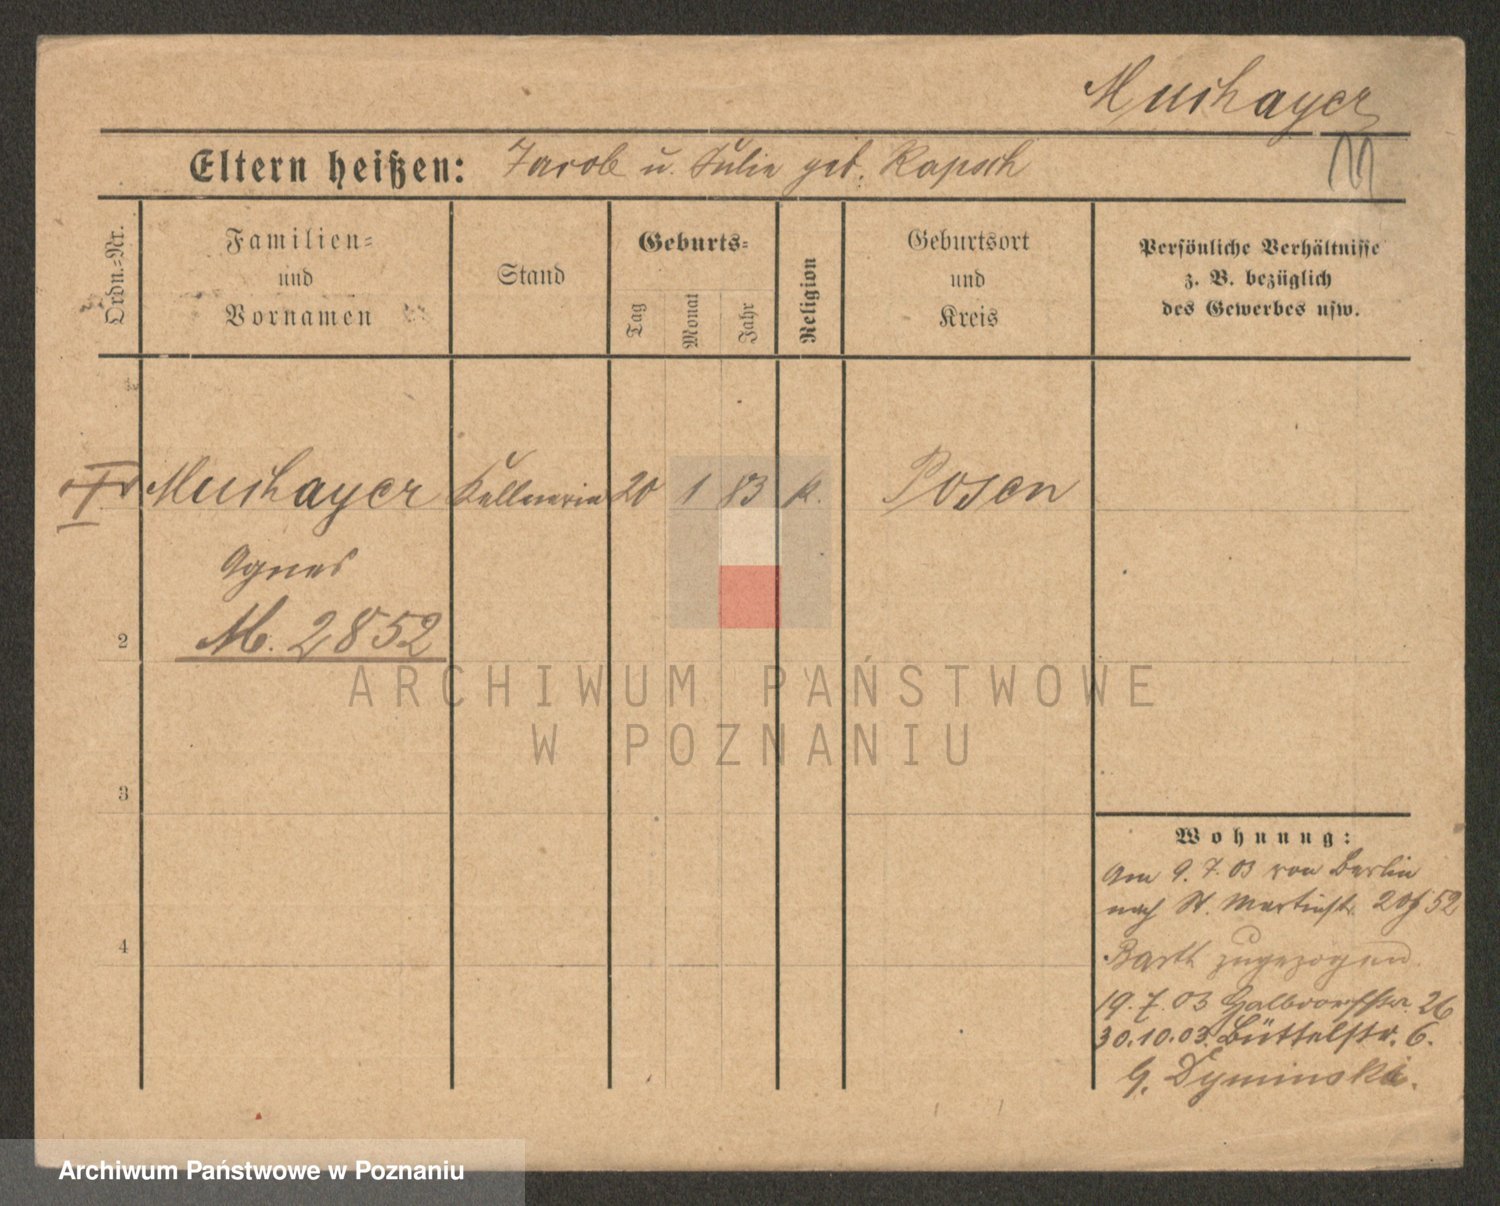 Mushayer
Eltern heißen: Jacob u. Julie geb. Rapsch
Ordn.-Nr.
Familien-
und
Vornamen
Stand
Geburts-
Tag
Monat
Jahr
Religion
Geburtsort
und
Kreis
Persönliche Verhältnisse
z. B. bezüglich
des Gewerbes usw.
Mushayer Kellnerin 20 1 83 k. Posen
Agnes
M. 2852
2
3
4
Wohnung:
Am 9.7.03 von Berlin
nach St. Martinstr. 52
Barth zugezogen
19.7.03 26
30.10.03. Büttelstr. 6.
G. Dyminski.
ARCHIWUM PAŃSTWOWE
W POZNANIU
Archiwum Państwowe w Poznaniu